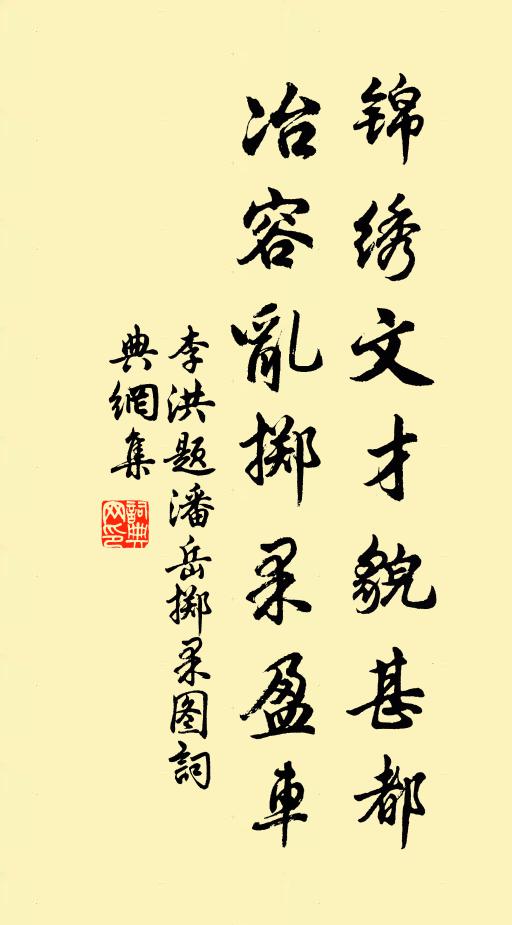 锦绣文才貌甚都
冶容乱掷果盈车
李洪题潘岳掷果图词
典网集
詞典网印